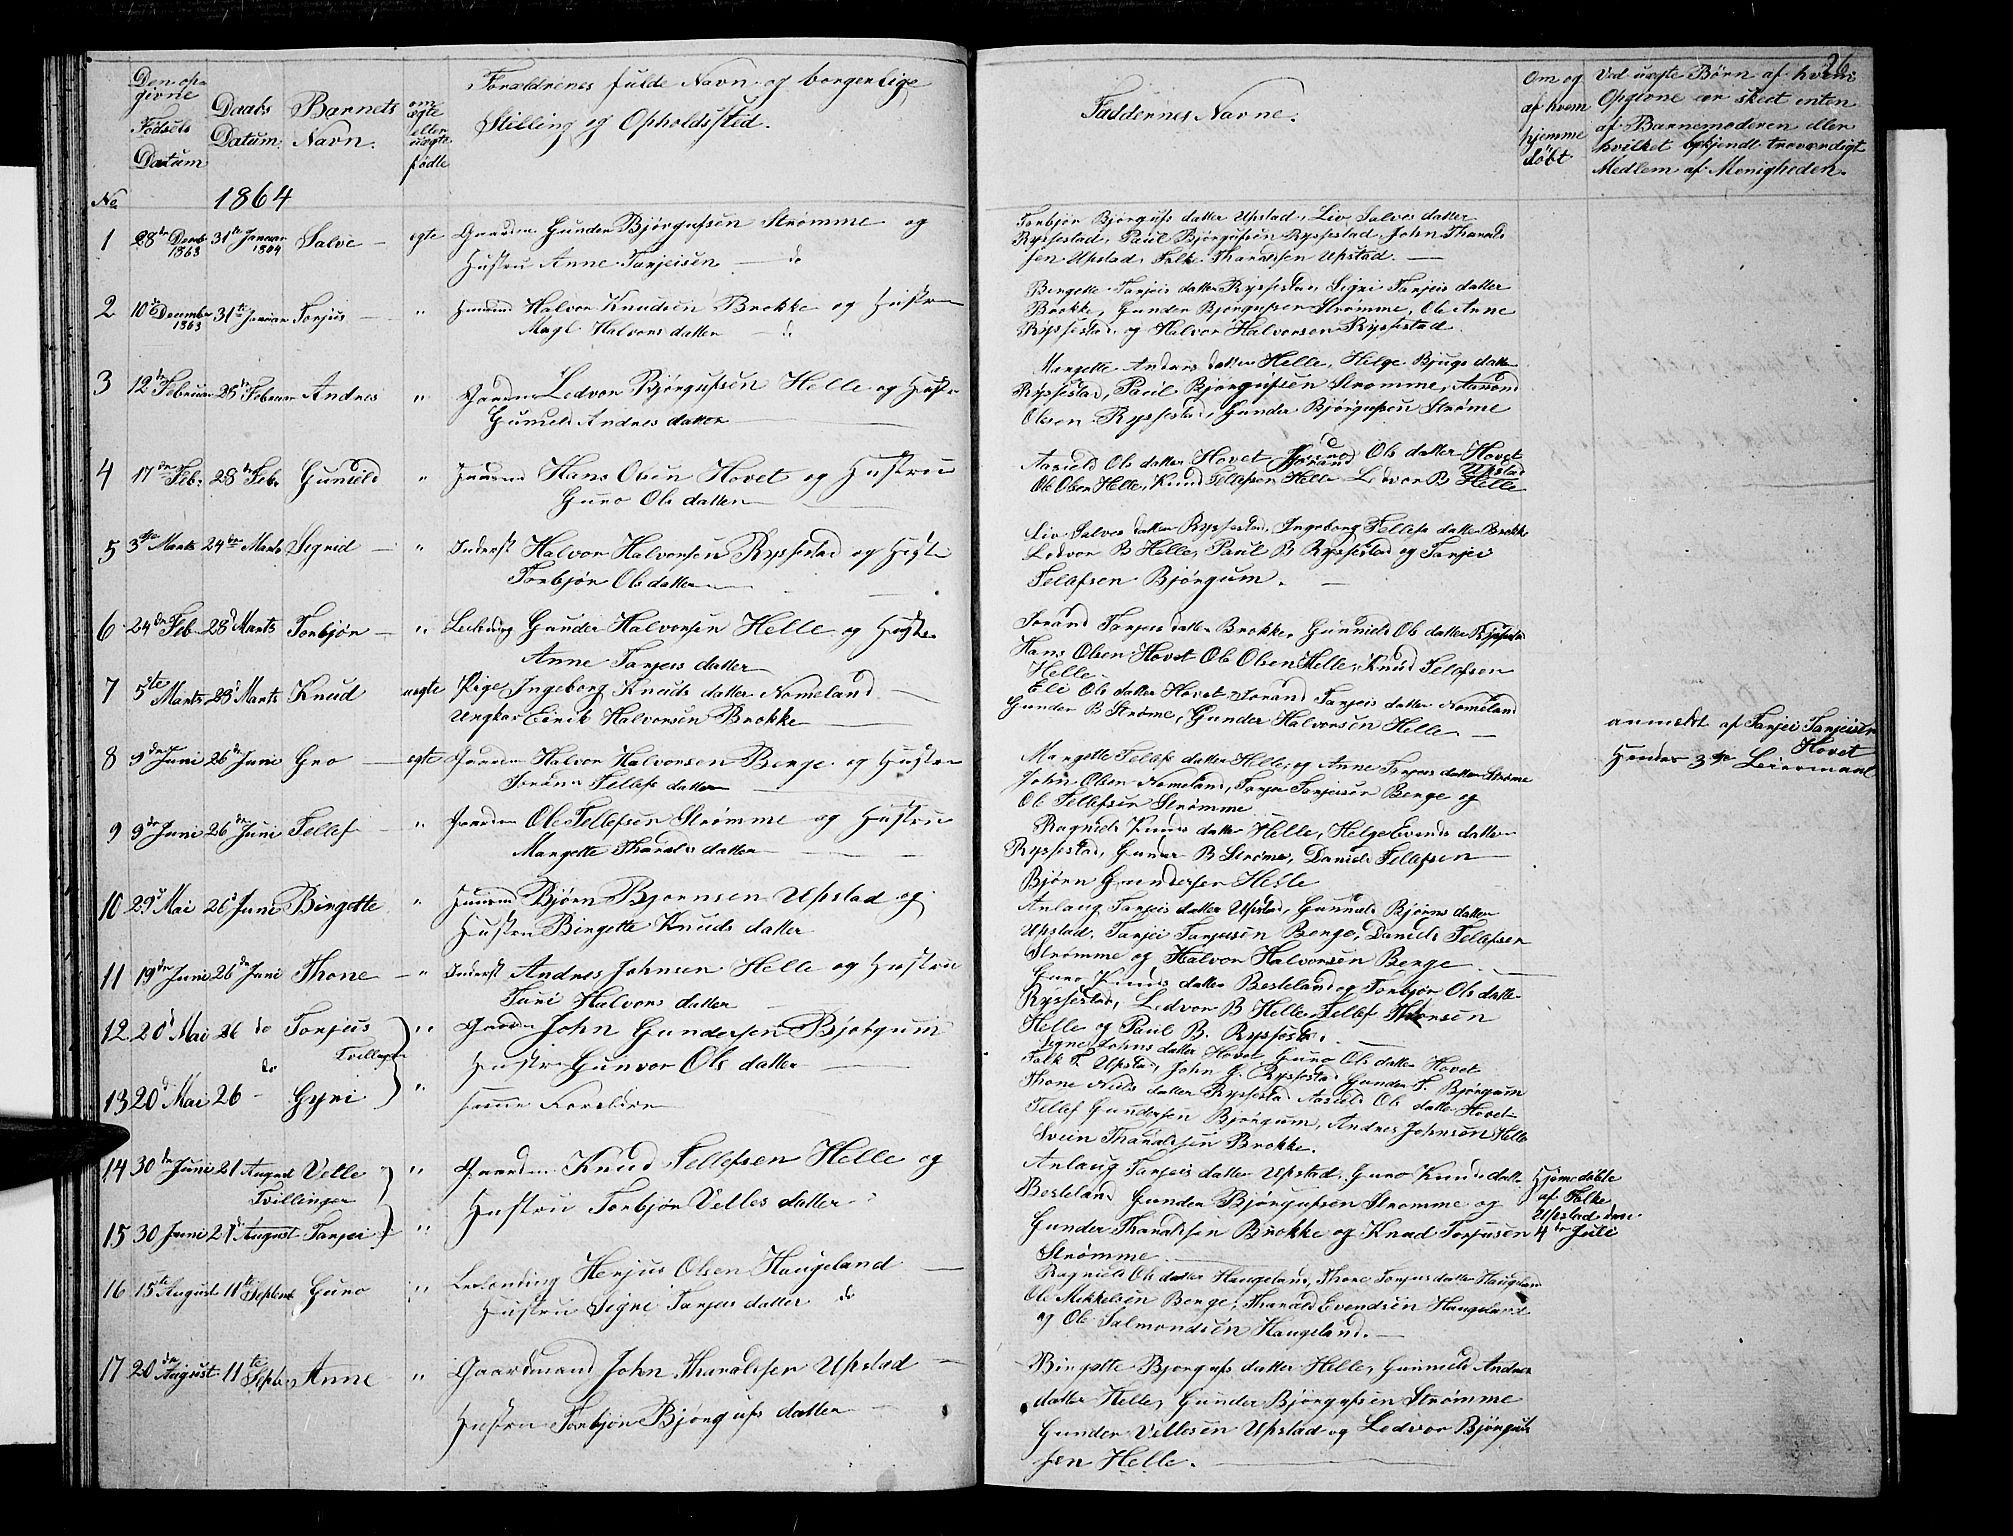 26
Den op=
givne
Fødsels
Datum
Daabs
Datum.
Barnets
Navn.
om
ægte
eller
uægte
fødte
Forældrenes fulde Navn og borgerlige
Stilling og Opholdssted.
Faddernes Navne.
Om og
af hvem
hjemme
døbt
Ved uægte Børn af hvem
Opgivne er skeet enten
af Barnemoderen eller
hvilket bekjendt troværdigt
Medlem af Menigheden.
No
1864
1 28de Decmb 1863 31te Januar 1864 Salve egte Gaardm Gunder Bjørgufsen Strømme og
Hustru Anne Tarjeisen do
Torbjør Bjørgufs datter Upstad, Liv Salves datter
Rysfestad, Paul Bjørgufsen Rysfestad, John Tharalds
sen Upstad, Falk Tharaldsen Upstad.
2 10de December 1863 31te Januar Torjus " Halvor Knudsen Brokke og Hustru
Magl Halvors datter do
Bergette Tarjeis datter Rysfestad, Sigri Tarjeis datter
Brokke, Gunder Bjørgufsen Strømme, Ole Anne
Rysfestad og Halvor Halvorsen Rysfestad.
3 12te Februar 28de Februar Andres " Gaardm Ledvor Bjørgufsen Helle og Hustr
Gunild Andres datter
Margette Andres datter Helle, Helge Bjugs datter
Rysfestad, Paul Bjørgufsen Strømme, Aamund
Olsen Rysfestad, Gunder Bjørgufsen Strøme
4 17de Feb. 28de Feb. Gunild " Hans Olsen Hovet og Hustru
Guro Ols datter
Aasield Ols datter Hovet, Jorand Ols datter Hovet
Upstad
Ole Olsen Helle, Knud Tellefsen Helle Ledvor B Helle
5 3die Marts 24de Marts Sigrid " Inderst Halvor Halvorsen Rysfestad og Hust
Torbjør Ols datter
Liv Salves datter Rysfestad, Ingeborg Tellefs datter Brokke
Ledvor B Helle, Paul B Rysfestad og Tarjei
Telefsen Bjørgum.
6 24de Feb 28d Marts Torbjør " Gunder Halvorsen Helle og Hust
Anne Tarjeis datter
Jorand Tarjeis datter Brokke, Gunnild Ols datter Rysfestad
Hans Olsen Hovet Ole Olsen Helle, Knud Tellefsen
Helle
7 5te Marts 28d Marts Knud uegte Pige Ingeborg Knuds datter Nomeland
Ungkar Eirik Halvorsen Brokke
Eli Ols datter Hovet, Jorand Tarjeis datter Nomeland
Gunder B Strøme, Gunder Halvorsen Helle
anmeldt af Tarjei Tarjeisen
Hovet
Hendes 3die Leiermaal
8 9de Juni 26de Juni Gro egte Gaardm Halvor Halvorsen Berge og Hustru
Jorann Tellefs datter
Margette Tellefs datter Helle, og Anne Torjus datter Strøme
John Olsen Nomeland, Tarjei Tarjeisen Berge og
Ole Tellefsen Strømme
9 9de Juni 26de Juni Tellef " Gaardm Ole Tellefsen Strømme og Hustru
Margette Tharalds datter
Ragnild Knuds datter Helle, Helge Evends datter
Rysfestad, Gunder B Strøme, Daniel Telefsen
Bjørn Gundersen Helle
10 29d Mai 26d Juni Birgette " Bjørn Bjørnsen Upstad og
Hustru Birgette Knuds datter
Anlaug Tarjeis datter Upstad, Gunnild Bjørns datter
Upstad, Tarjei Tarjeisen Berge, Daniel Telefsen
Strømme og Halvor Halvorsen Berge
11 19de Juni 26de Juni Thone " Inderst Andres Johnsen Helle og Hustru
Turi Halvors datter
Guro Knuds datter Besteland og Torbjør Ols datter
Rysfestad, Ledvor B Helle, Tellef
Helle og Paul B. Rysfestad.
12 20d Mai 26 do Torjus
Tvillinger
" Gaardm John Gundersen Bjørgum
Hustru Gunvor Ols datter
Signe Johns datter Hovet, Guro Ols datter Hovet
Falk T Upstad, John G. Rysfestad Gunder T. Bjørgum
13 20d Mai 26 do Gyri " samme Foreldre
Thone Nils datter Rysfestad Aasield Ols datter Hovet
Tellef Gundersen Bjørgum, Andres Johnsen Helle
Svein Tharaldsen Brokke.
14 30de Juni 21 August Vetle
Tvillinger
" Gaardm Knud Tellefsen Helle og
Hustru Torbjør Vetles datter
Anlaug Tarjeis datter Upstad, Guro Knuds datter
Besteland Gunder Bjørgufsen Strømme og
Hjemedøbte
af Falke
Upstad den
4de Juli
15 30 Juni 21d August Tarjei "
Gunder Tharaldsen Brokke og Knud Torjusen
Strømme
16 15te August 11te Septemb Guro " Herjus Olsen Haugeland
Hustru Signe Tarjeis datter do
Ragnild Ols datter Haugeland, Thone Torjus datter Haugeland
Ole Mikkelsen Berge, Tharald Evendsen Haugeland
og Ole Salmondsen Haugeland.
17 20de August 11te Septb. Anne " Gaardmand John Tharaldsen Upstad
Hustru Torbjør Bjørgufs datter
Birgette Bjørgufs datter Helle, Gunnild Andres
datter Helle, Gunder Bjørgufsen Strømme
Gunder Vetlesen Upstad og Ledvor Bjørguf
sen Helle.